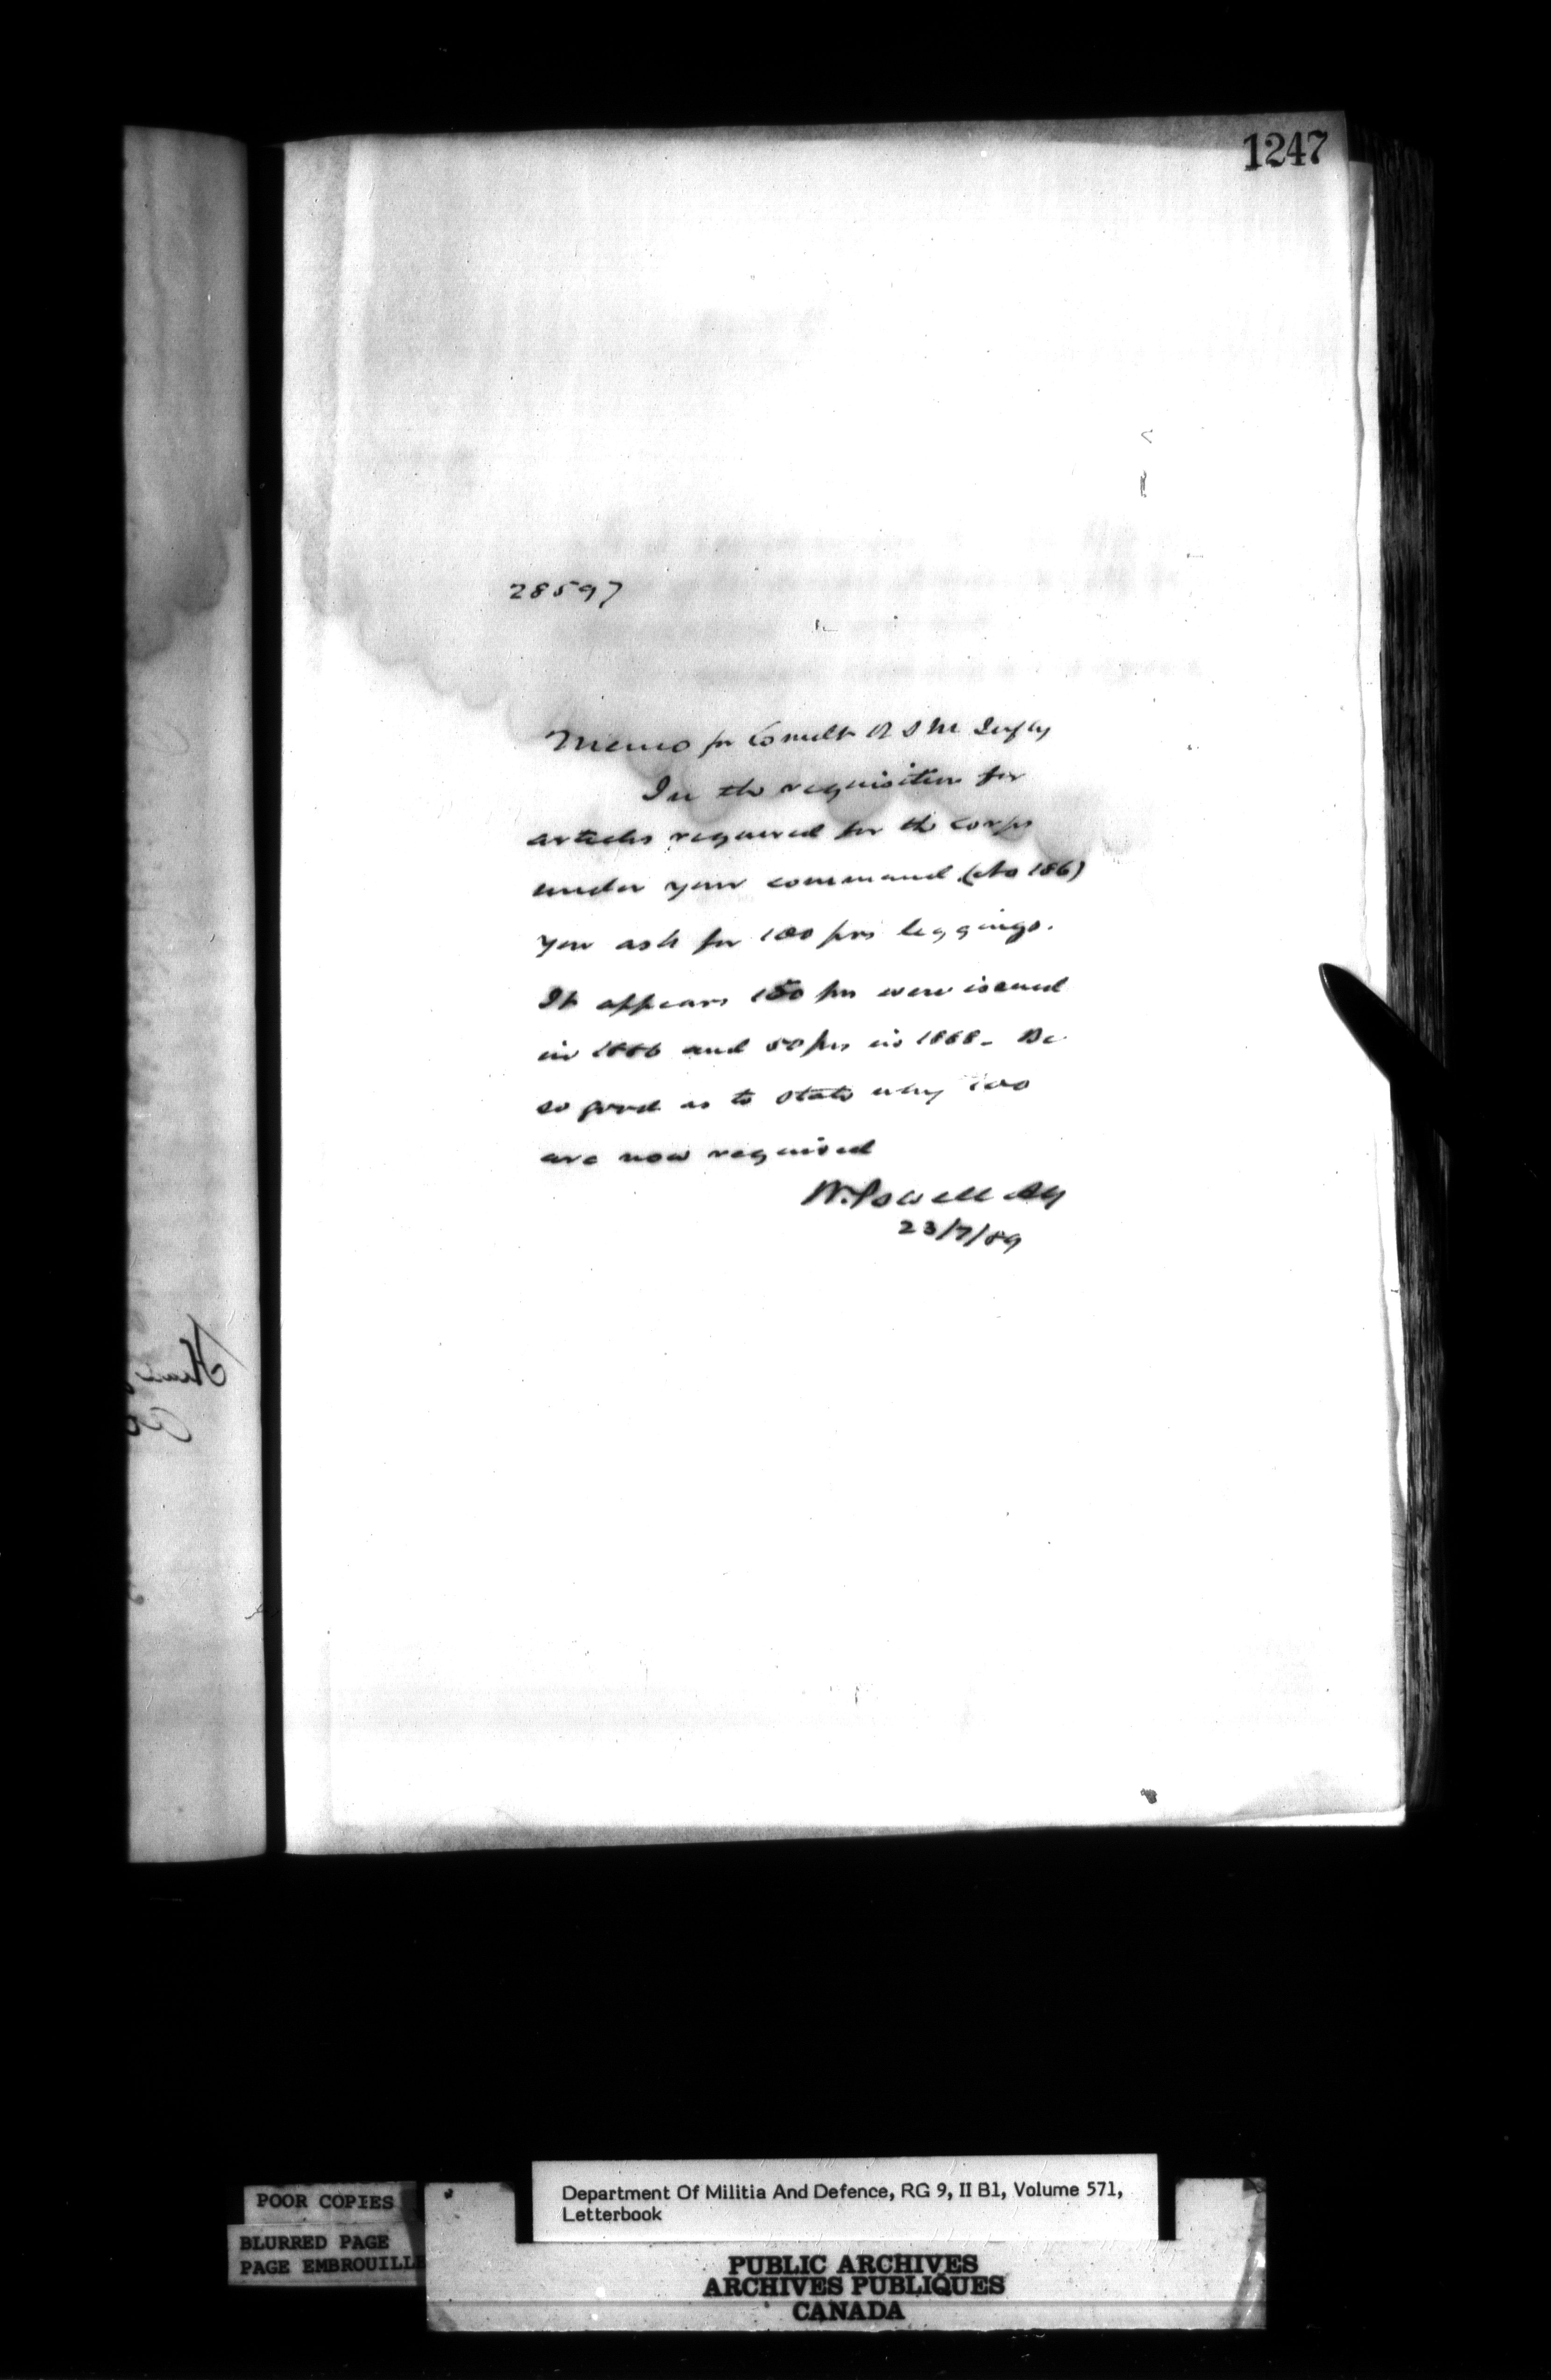 1247
28597
Memo for Comdt R S M Infty
In the requisition for
articles required for the corps
under your command (No 186)
you ask for 100 prs leggings.
It appears 150 prs were issued
in 1886 and 50 prs in 1888. Be
so good as to state why 100
are now required
W. Powell AG
23/7/89
POOR COPIES
BLURRED PAGE
PAGE EMBROUILLE
Department Of Militia And Defence, RG 9, II B1, Volume 571,
Letterbook
PUBLIC ARCHIVES
ARCHIVES PUBLIQUES
CANADA